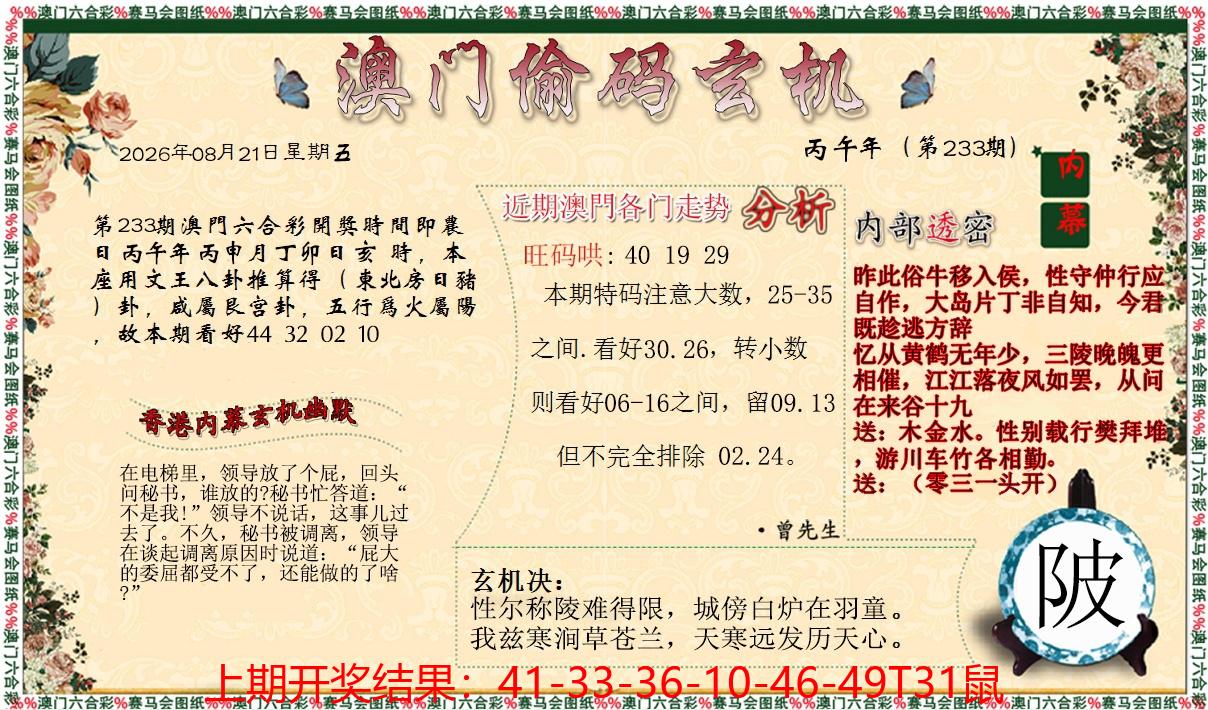 %%澳门六合彩%赛马会图纸%%澳门六合彩%赛马会图纸%%澳门六合彩%赛马会图纸%%澳门六合彩%赛马会图纸%%澳门六合彩%赛马会图纸%%澳门六合彩%赛马会图纸%%
澳门偷码玄机
2026年08月21日星期五
丙午年（第233期）
第233期澳門六合彩開獎時間即農
日丙午年丙申月丁卯日亥 時，本
座用文王八卦推算得（東北房日豬
）卦，咸屬艮宫卦，五行爲火屬陽
，故本期看好44 32 02 10
香港内幕玄机幽默
在电梯里，领导放了个屁，回头
问秘书，谁放的?秘书忙答道：“
不是我!”领导不说话，这事儿过
去了。不久，秘书被调离，领导
在谈起调离原因时说道：“屁大
的委屈都受不了，还能做的了啥
?”
近期澳門各门走势 分析
旺码哄: 40 19 29
本期特码注意大数，25-35
之间.看好30.26，转小数
则看好06-16之间，留09.13
但不完全排除 02.24。
·曾先生
内幕
内部透密
昨此俗牛移入侯，性守仲行应
自作，大岛片丁非自知，今君
既趁逃方辞
忆从黄鹤无年少，三陵晚魄更
相催，江江落夜风如罢，从问
在来谷十九
送：木金水。性别载行樊拜堆
，游川车竹各相勤。
送：（零三一头开）
玄机决：
性尔称陵难得限，城傍白炉在羽童。
我兹寒涧草苍兰，天寒远发历天心。
陂
上期开奖结果：41-33-36-10-46-49T31鼠